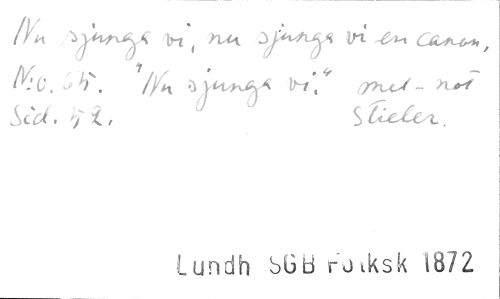 Nu sjunga vi, nu sjunga vi en canon,
N:o. 65. "Nu sjunga vi." mel-not
Sid. 52. Stieler.
Lundh SGB Folksk 1872